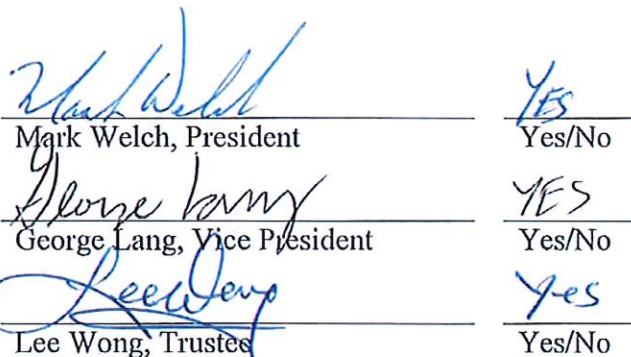 Mark Welch YES
Mark Welch, President Yes/No
George Lang YES
George Lang, Vice President Yes/No
Lee Wong Yes
Lee Wong, Trustee Yes/No